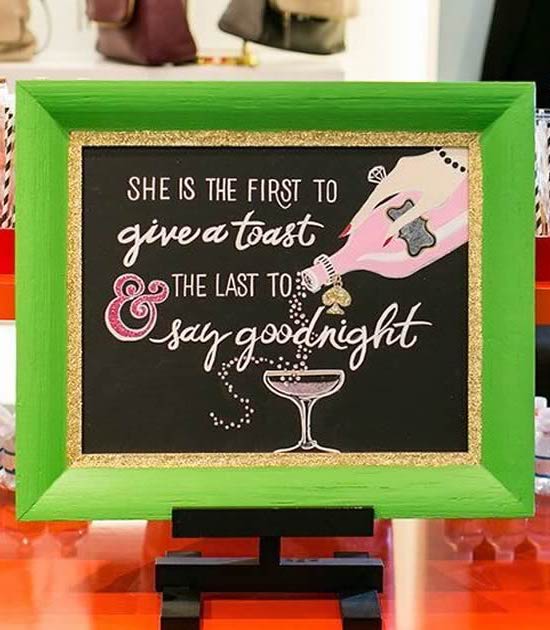 SHE IS THE FIRST TO
give a toast
& THE LAST TO
say goodnight